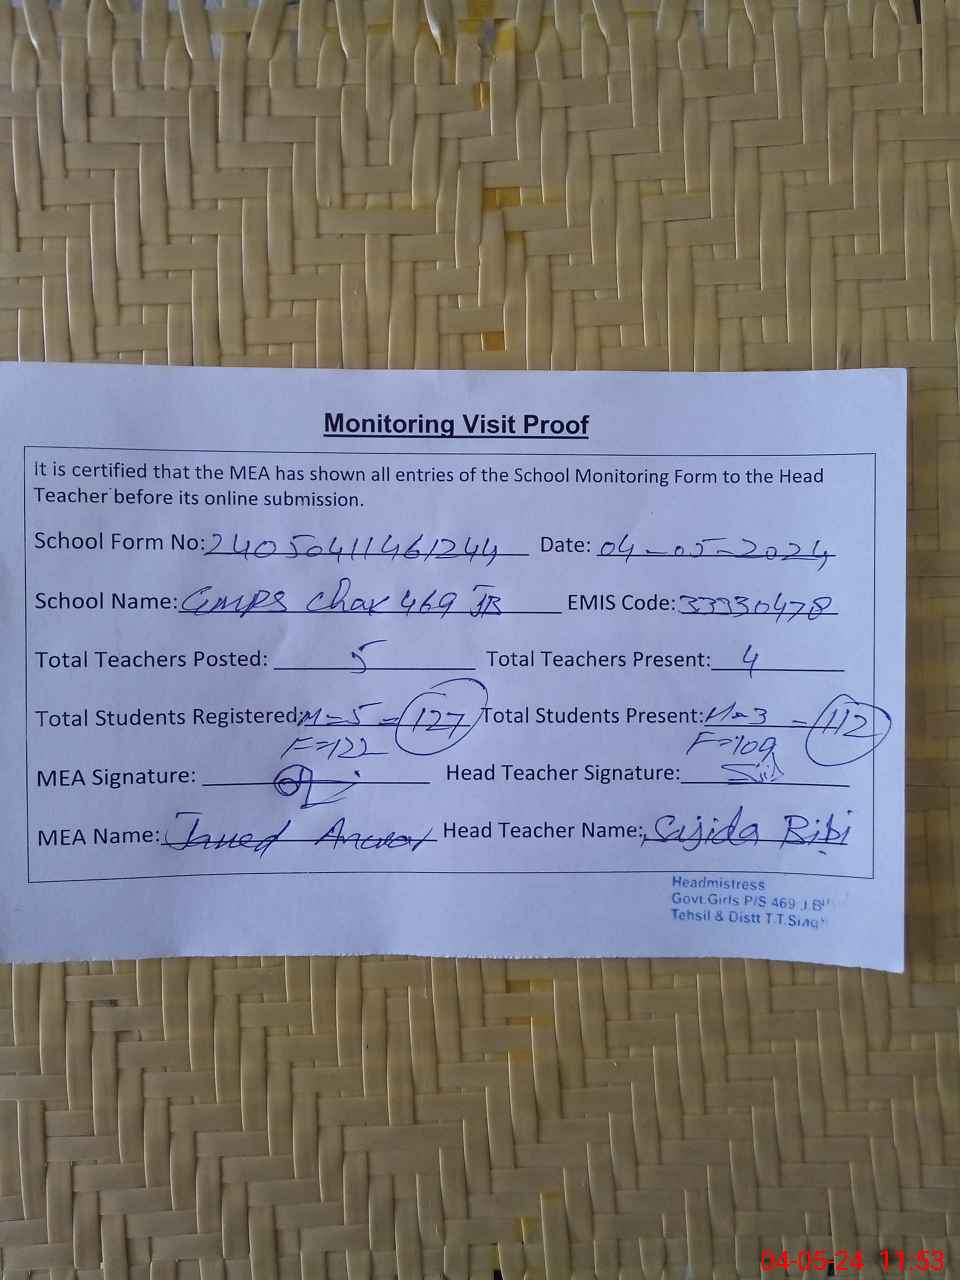 Monitoring Visit Proof
It is certified that the MEA has shown all entries of the School Monitoring Form to the Head
Teacher before its online submission.
School Form No: 24050411461244 Date: 04-05-2024
School Name: GMPS Chak 469 JB EMIS Code: 33330478
Total Teachers Posted: 5 Total Teachers Present: 4
Total Students Registered: M=5 - 127 Total Students Present: M=3 - 112
F=122 F=109
MEA Signature: Head Teacher Signature:
MEA Name: Javed Anwar Head Teacher Name: Sajida Bibi
Headmistress
Govt.Girls P/S 469 J.B
Tehsil & Distt T.T.Singh
04-05-24 11:53